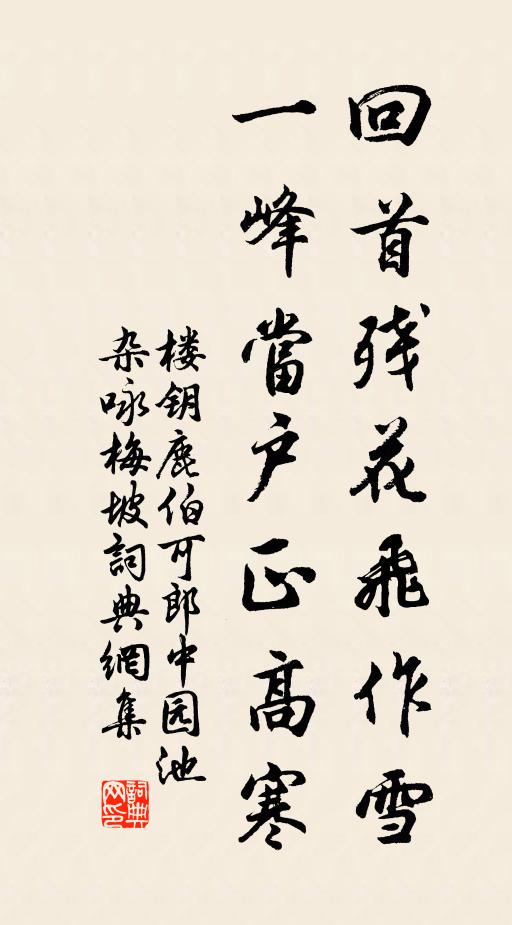 回首残花飛作雪
一峰當户正高寒
楼钥鹿伯可郎中园池
杂咏梅坡詞典網集
詞典
网印